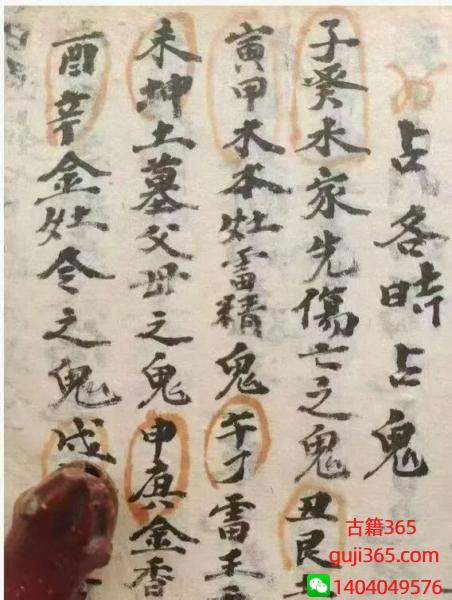 占各時占鬼
子癸水家先傷亡之鬼丑艮
寅甲木木灶雷精鬼午丁雷王
未坤土墓父母之鬼申庚金香
酉辛金灶令之鬼戌
古籍365
guji365.com
1404049576